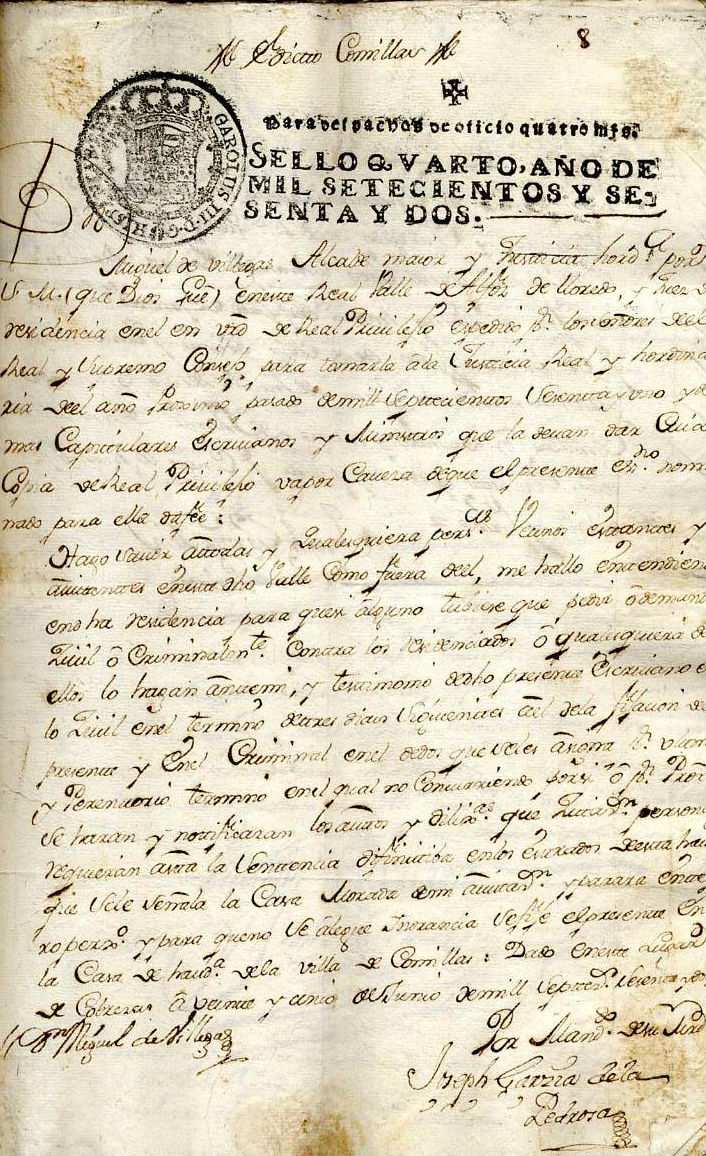 Edicto Comillas
8
Para despachos de oficio quatro mrs.
SELLO QVARTO, AÑO DE
MIL SETECIENTOS Y SE-
SENTA Y DOS.
CAROLUS III D. G. HISP
Dn
Miguel de Villegas Alcalde maior y Justicia hordª por
S. M. (que Dios gue) eneste Real Valle de Alfoz de lloredo, y Juez de
residencia enel en vtd de Real Privilejio expedido pr. los señores del
Real y Supremo Consejo para tomarla ala Justicia Real y hordina
ria del año proximo pasado demill Septecientos Sesenta y uno y de
mas Capitulares Escrivanos y Ministros que la devan dar Cuia
Copia de Real Privilejio va por Cavera deque el presente esno nomi
nado para ella dafee:
Hago saver atodas y qualesquiera persas Vecinos estantes y
avitantes eneste dho Valle como fuera del, me hallo entendien
endha residencia para quesi alguno tubiese que pedir o demandar
Zivil o Criminalmte. Contra los residenciados o qualesquiera de
ellos lo hagan antemi, y testimonio dedho presente Escrivano e
lo Zivil enel termino detres dias siguientes al dela fijacion del
presente y enel Criminal enel dedos que seles asigna pr. ultimo
y Perentorio termino enel qual no Concurriendo porsi o pr. Procr
se haran y notificaran los autos y diligas. que personal
requieran asta la Sentencia difinitiba enlos estrados desta haud
que sele señala la Casa Morada demi avitazn. y parara entero
perxo. y para queno se alegue Inorancia sefije el presente en
la Casa de haudª. de la villa de Comillas: Dado eneste Lugar
de Cobreces a veinte y cinco de Junio demill Septets. sesenta y dos
Dn Miguel de Villegas
Por Mando. de su Mrd
Joseph Garzia dela
Pedrosa